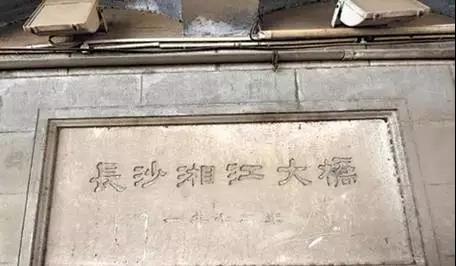 長沙湘江大橋
一九七二年